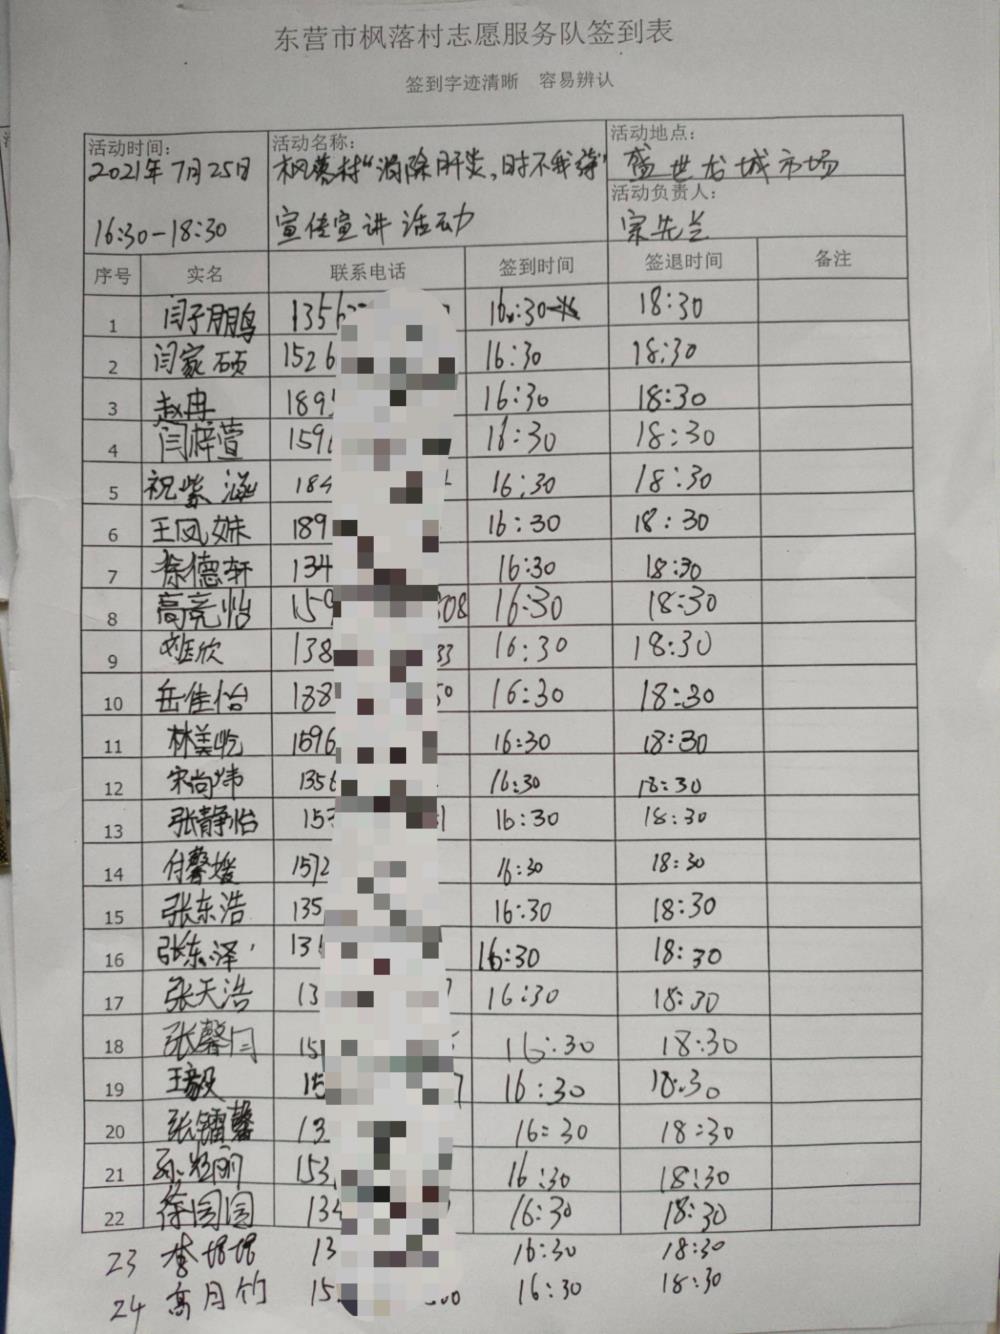 东营市枫落村志愿服务队签到表
签到字迹清晰 容易辨认
活动时间: 活动名称: 活动地点:
2021年7月25日 枫落村“消除肝炎,时不我待” 盛世龙城市场
活动负责人:
16:30-18:30 宣传宣讲活动 宗先兰
序号 实名 联系电话 签到时间 签退时间 备注
1 闫子鹏 135 16:30 18:30
2 闫家硕 1526 16:30 18:30
3 赵冉 189 16:30 18:30
4 闫梓萱 159 16:30 18:30
5 祝紫涵 184 16:30 18:30
6 王凤姝 189 16:30 18:30
7 徐德轩 134 16:30 18:30
8 高亮怡 159 308 16:30 18:30
9 欣 138 33 16:30 18:30
10 岳佳怡 138 50 16:30 18:30
11 林美屹 1596 16:30 18:30
12 宋尚炜 1356 16:30 18:30
13 张静怡 153 1 16:30 18:30
14 付馨媛 1572 16:30 18:30
15 张东浩 135 16:30 18:30
16 张东泽 13 16:30 18:30
17 张天浩 13 16:30 18:30
18 张馨 15 16:30 18:30
19 王毅 15 16:30 18:30
20 张镭馨 13 16:30 18:30
21 孙 丽 153 16:30 18:30
22 徐圆圆 134 16:30 18:30
23 李增增 13 16:30 18:30
24 高月竹 15 00 16:30 18:30